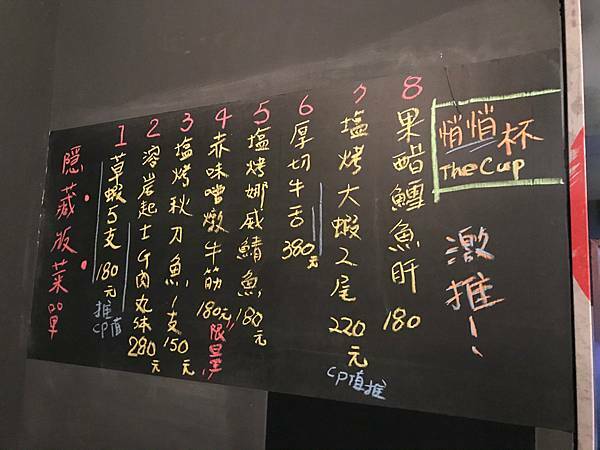 隱藏版菜單
1 草蝦5支 180元 推 CP值
2 溶岩起士牛肉丸 280元
3 塩烤秋刀魚1支 150元
4 赤味噌燉牛筋 180元 限量!!
5 塩烤娜威鯖魚 180元
6 厚切牛舌 380元
7 塩烤大蝦2尾 220元 CP值推
8 果醋鱈魚肝 180
悄悄杯
The Cup
激推!